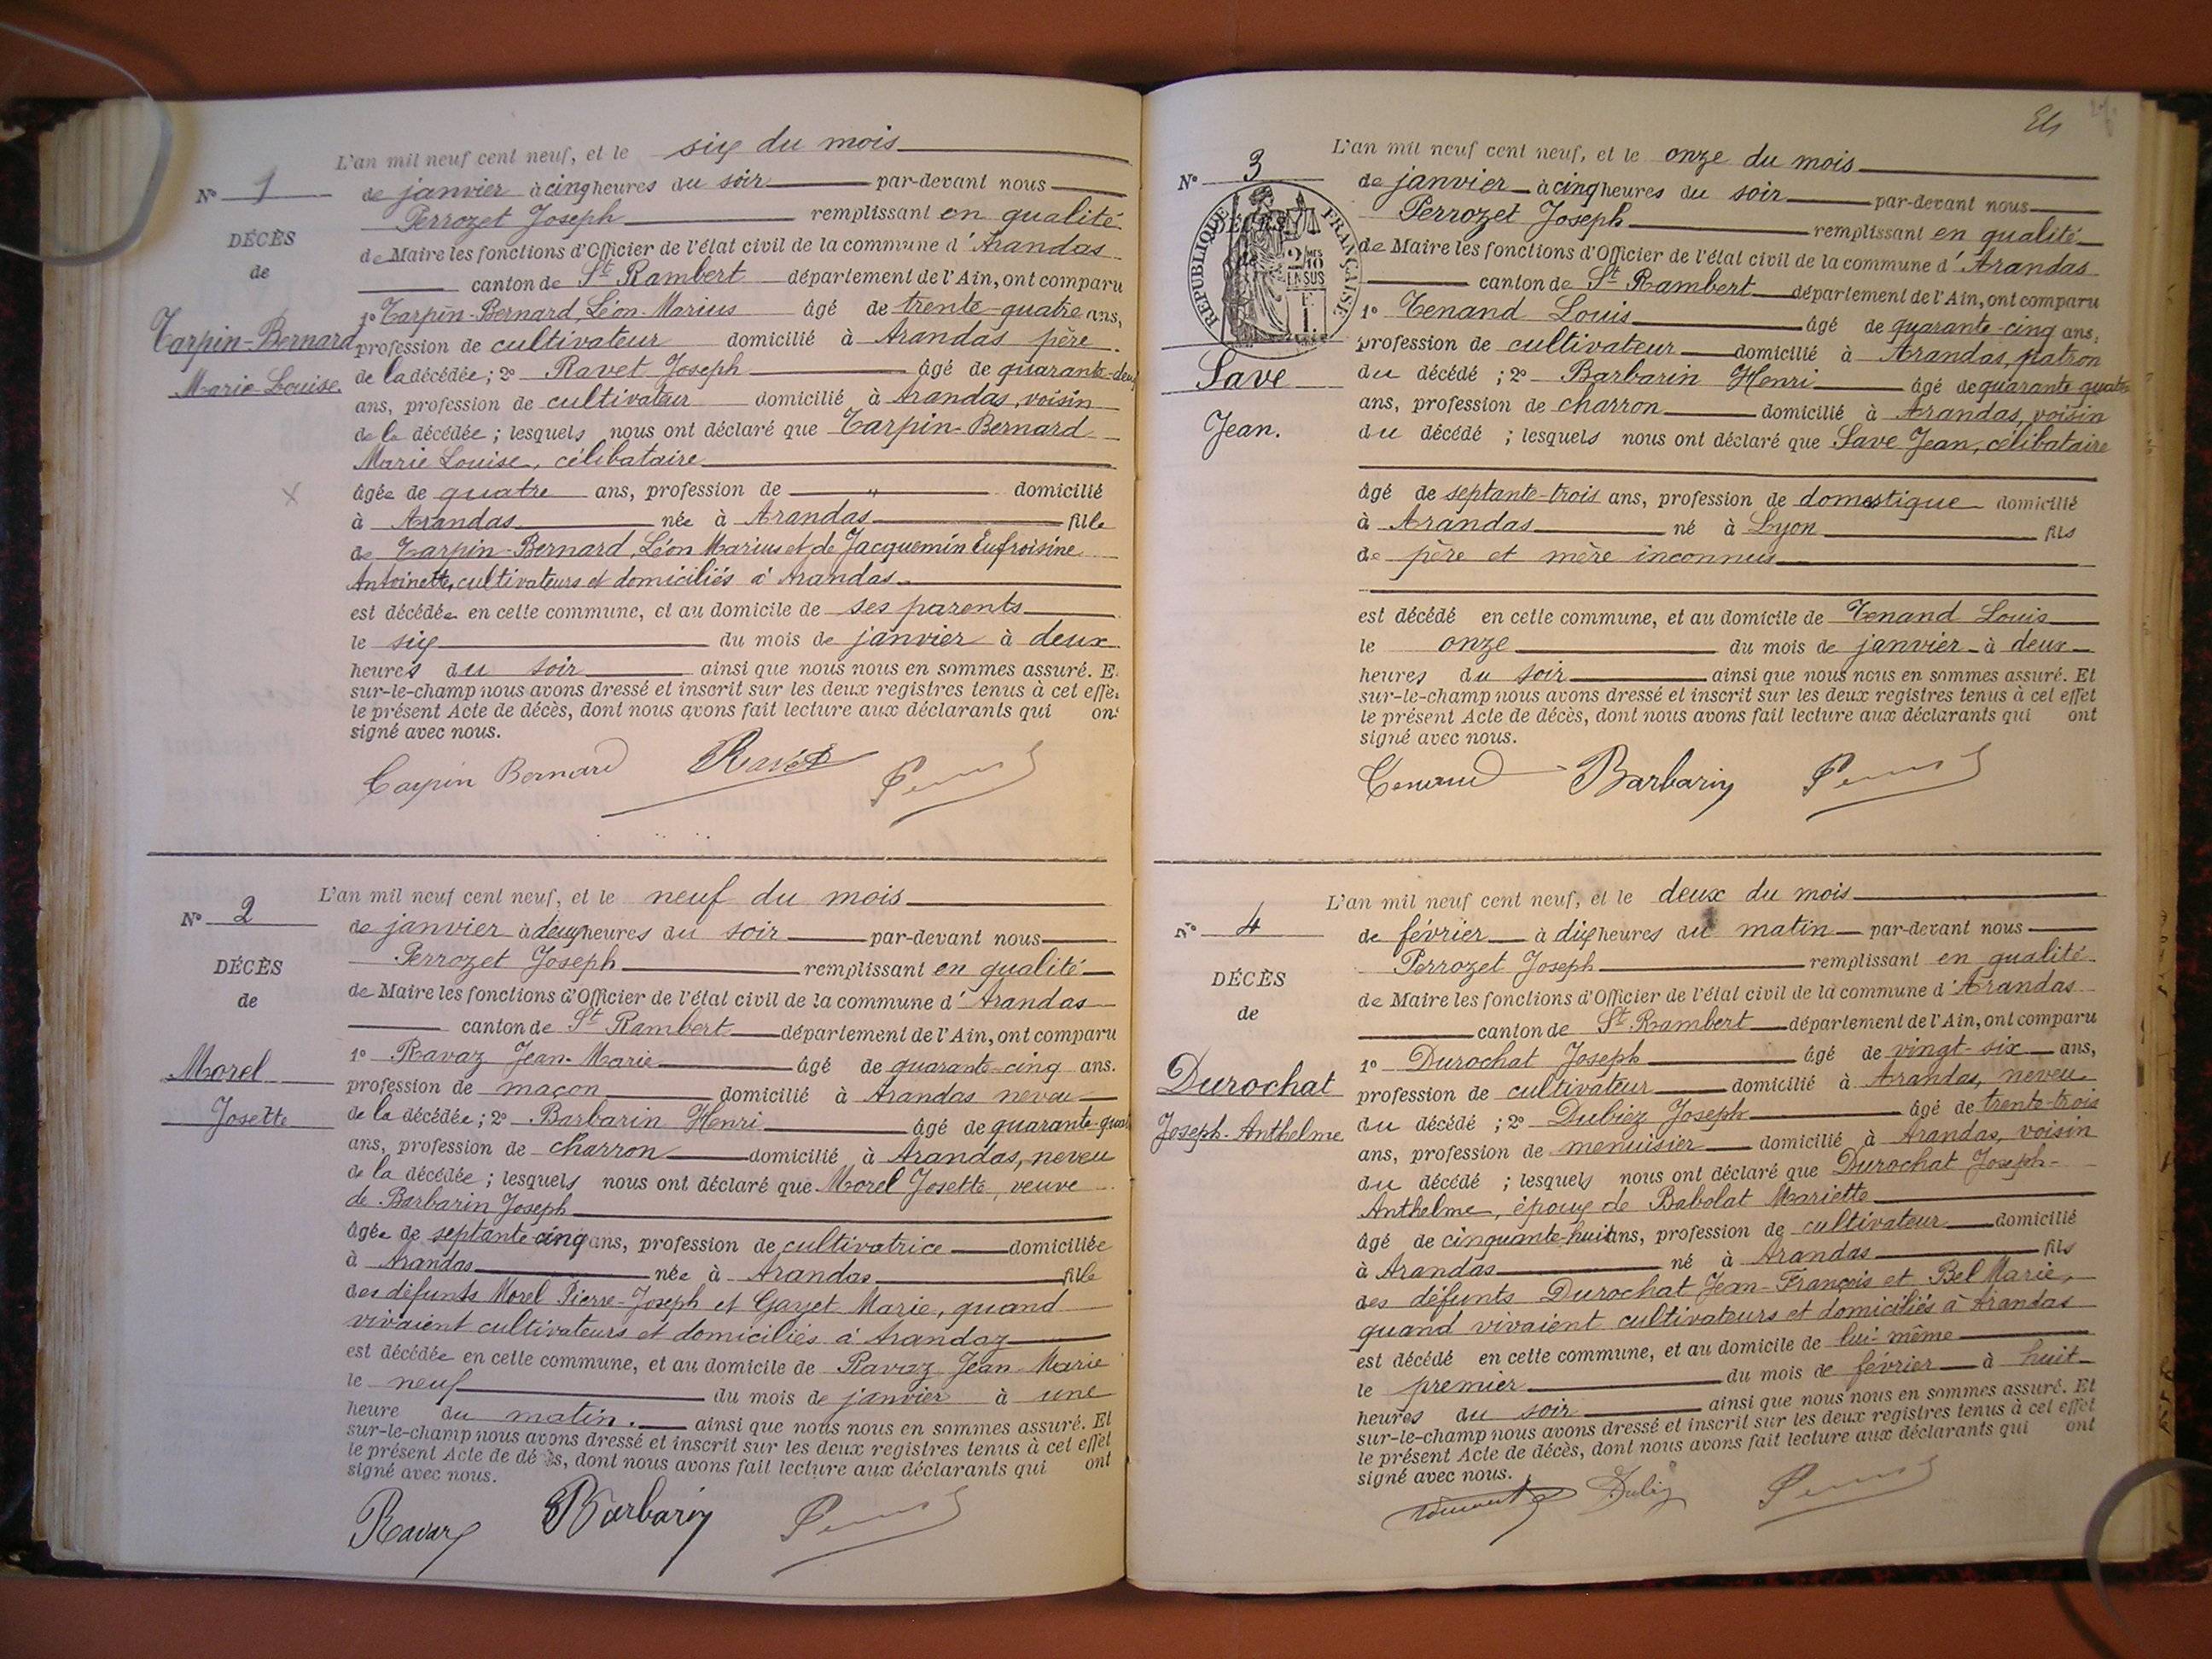 L'an mil neuf cent neuf, et le six du mois
N° 1
de janvier à cinq heures du soir par-devant nous
Perrozet Joseph remplissant en qualité
DÉCÈS
de Maire les fonctions d'Officier de l'état civil de la commune d'Arandas
de
canton de St Rambert département de l'Ain, ont comparu
1° Tarpin-Bernard, Léon Marius âgé de trente-quatre ans,
Tarpin-Bernard
profession de cultivateur domicilié à Arandas père
Marie Louise.
de la décédée ; 2° Ravet Joseph âgé de quarante-deux
ans, profession de cultivateur domicilié à Arandas, voisin
de la décédée ; lesquels nous ont déclaré que Tarpin-Bernard
Marie Louise, célibataire
âgée de quatre ans, profession de " domicilié
à Arandas née à Arandas fille
de Tarpin-Bernard, Léon Marius et de Jacquemin Eufroisine
Antoinette, cultivateurs et domiciliés à Arandas
est décédée en cette commune, et au domicile de ses parents
le six du mois de janvier à deux
heures du soir ainsi que nous nous en sommes assuré. E
sur-le-champ nous avons dressé et inscrit sur les deux registres tenus à cet effe
le présent Acte de décès, dont nous avons fait lecture aux déclarants qui on
signé avec nous.
Tarpin Bernard Ravet
L'an mil neuf cent neuf, et le neuf du mois
N° 2
de janvier à deux heures du soir par-devant nous
Perrozet Joseph remplissant en qualité
DÉCÈS
de Maire les fonctions d'Officier de l'état civil de la commune d'Arandas
de
canton de St Rambert département de l'Ain, ont comparu
1° Ravaz Jean-Marie âgé de quarante-cinq ans.
Morel
profession de maçon domicilié à Arandas neveu
Josette
de la décédée ; 2° Barbarin Henri âgé de quarante-quat
ans, profession de charron domicilié à Arandas, neveu
de la décédée ; lesquels nous ont déclaré que Morel Josette, veuve
de Barbarin Joseph
âgée de septante-cinq ans, profession de cultivatrice domiciliée
à Arandas née à Arandas fille
des défunts Morel Pierre-Joseph et Gayet Marie, quand
vivaient cultivateurs et domiciliés à Arandaz
est décédée en cette commune, et au domicile de Ravaz Jean-Marie
le neuf du mois de janvier à une
heure du matin. ainsi que nous nous en sommes assuré. Et
sur-le-champ nous avons dressé et inscrit sur les deux registres tenus à cet effet
le présent Acte de dé s, dont nous avons fait lecture aux déclarants qui ont
signé avec nous.
Ravaz Barbarin
L'an mil neuf cent neuf, et le onze du mois
N° 3
de janvier à cinq heures du soir par-devant nous
Perrozet Joseph remplissant en qualité
RÉPUBLIQUE FRANÇAISE
2/10 EN SUS
de Maire les fonctions d'Officier de l'état civil de la commune d'Arandas
canton de St Rambert département de l'Ain, ont comparu
1° Tenand Louis âgé de quarante-cinq ans,
profession de cultivateur domicilié à Arandas, patron
Save
du décédé ; 2° Barbarin Henri âgé de quarante quatre
ans, profession de charron domicilié à Arandas, voisin
Jean.
du décédé ; lesquels nous ont déclaré que Save Jean, célibataire
âgé de septante-trois ans, profession de domestique domicilié
à Arandas né à Lyon fils
de père et mère inconnus
est décédé en cette commune, et au domicile de Tenand Louis
le onze du mois de janvier à deux
heures du soir ainsi que nous nous en sommes assuré. Et
sur-le-champ nous avons dressé et inscrit sur les deux registres tenus à cet effet
le présent Acte de décès, dont nous avons fait lecture aux déclarants qui ont
signé avec nous.
Tenand Barbarin
L'an mil neuf cent neuf, et le deux du mois
N° 4
de février à dix heures du matin par-devant nous
Perrozet Joseph remplissant en qualité
DÉCÈS
de Maire les fonctions d'Officier de l'état civil de la commune d'Arandas
de
canton de St Rambert département de l'Ain, ont comparu
1° Durochat Joseph âgé de vingt-six ans,
Durochat
profession de cultivateur domicilié à Arandas, neveu
Joseph-Anthelme
du décédé ; 2° Dubiez Joseph âgé de trente-trois
ans, profession de menuisier domicilié à Arandas, voisin
du décédé ; lesquels nous ont déclaré que Durochat Joseph-
Anthelme, époux de Babolat Mariette
âgé de cinquante-huit ans, profession de cultivateur domicilié
à Arandas né à Arandas fils
des défunts Durochat Jean-François et Bel Marie,
quand vivaient cultivateurs et domiciliés à Arandas
est décédé en cette commune, et au domicile de lui-même
le premier du mois de février à huit
heures du soir ainsi que nous nous en sommes assuré. Et
sur-le-champ nous avons dressé et inscrit sur les deux registres tenus à cet effet
le présent Acte de décès, dont nous avons fait lecture aux déclarants qui ont
signé avec nous.